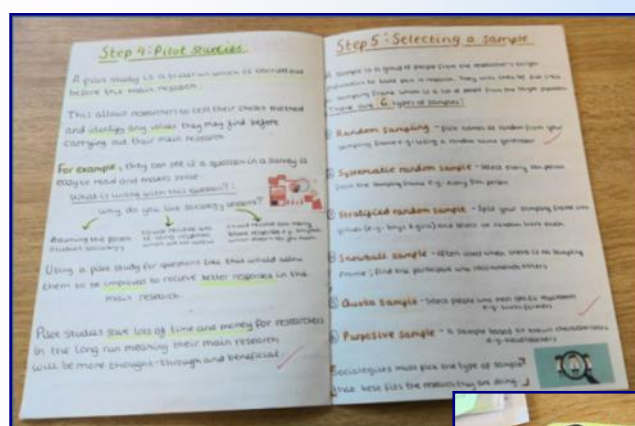 Step 4: Pilot Studies
A pilot study is a trial run which is carried out
before the main research.
This allows researchers to test their chosen method
and identify any issues they may find before
carrying out their main research.
For example, they can see if a question in a survey is
easy to read and makes sense.
What is wrong with this question?:
Why do you like sociology lessons?
Assuming the person
studies sociology
Using a pilot study for questions like this would allow
them to be improved to recieve better responses in the
main research.
Pilot studies save lots of time and money for researchers
in the long run meaning their main research
will be more thought-through and beneficial.
Step 5: Selecting a sample
A sample is a group of people from the researcher's target
population to take part in research. They will then be put into
a sampling frame which is a list of people from the target population
There are 6 types of samples:
Random sampling - pick names at random from your
sampling frame e.g. using a random name generator
② Systematic random sample - Select every nth person
from the sampling frame e.g. every 5th person
③ Stratified random sample - Split your sampling frame into
groups (e.g. boys & girls) and select at random from each
④ Snowball sample - often used when there is no sampling
frame; find one participant who recommends others
⑤ Quota sample - Select people who meet specific requirements
⑥ Purposive sample - a sample based on known characteristics
e.g. headteachers
Sociologists must pick the type of sample
that best fits the research they are doing.